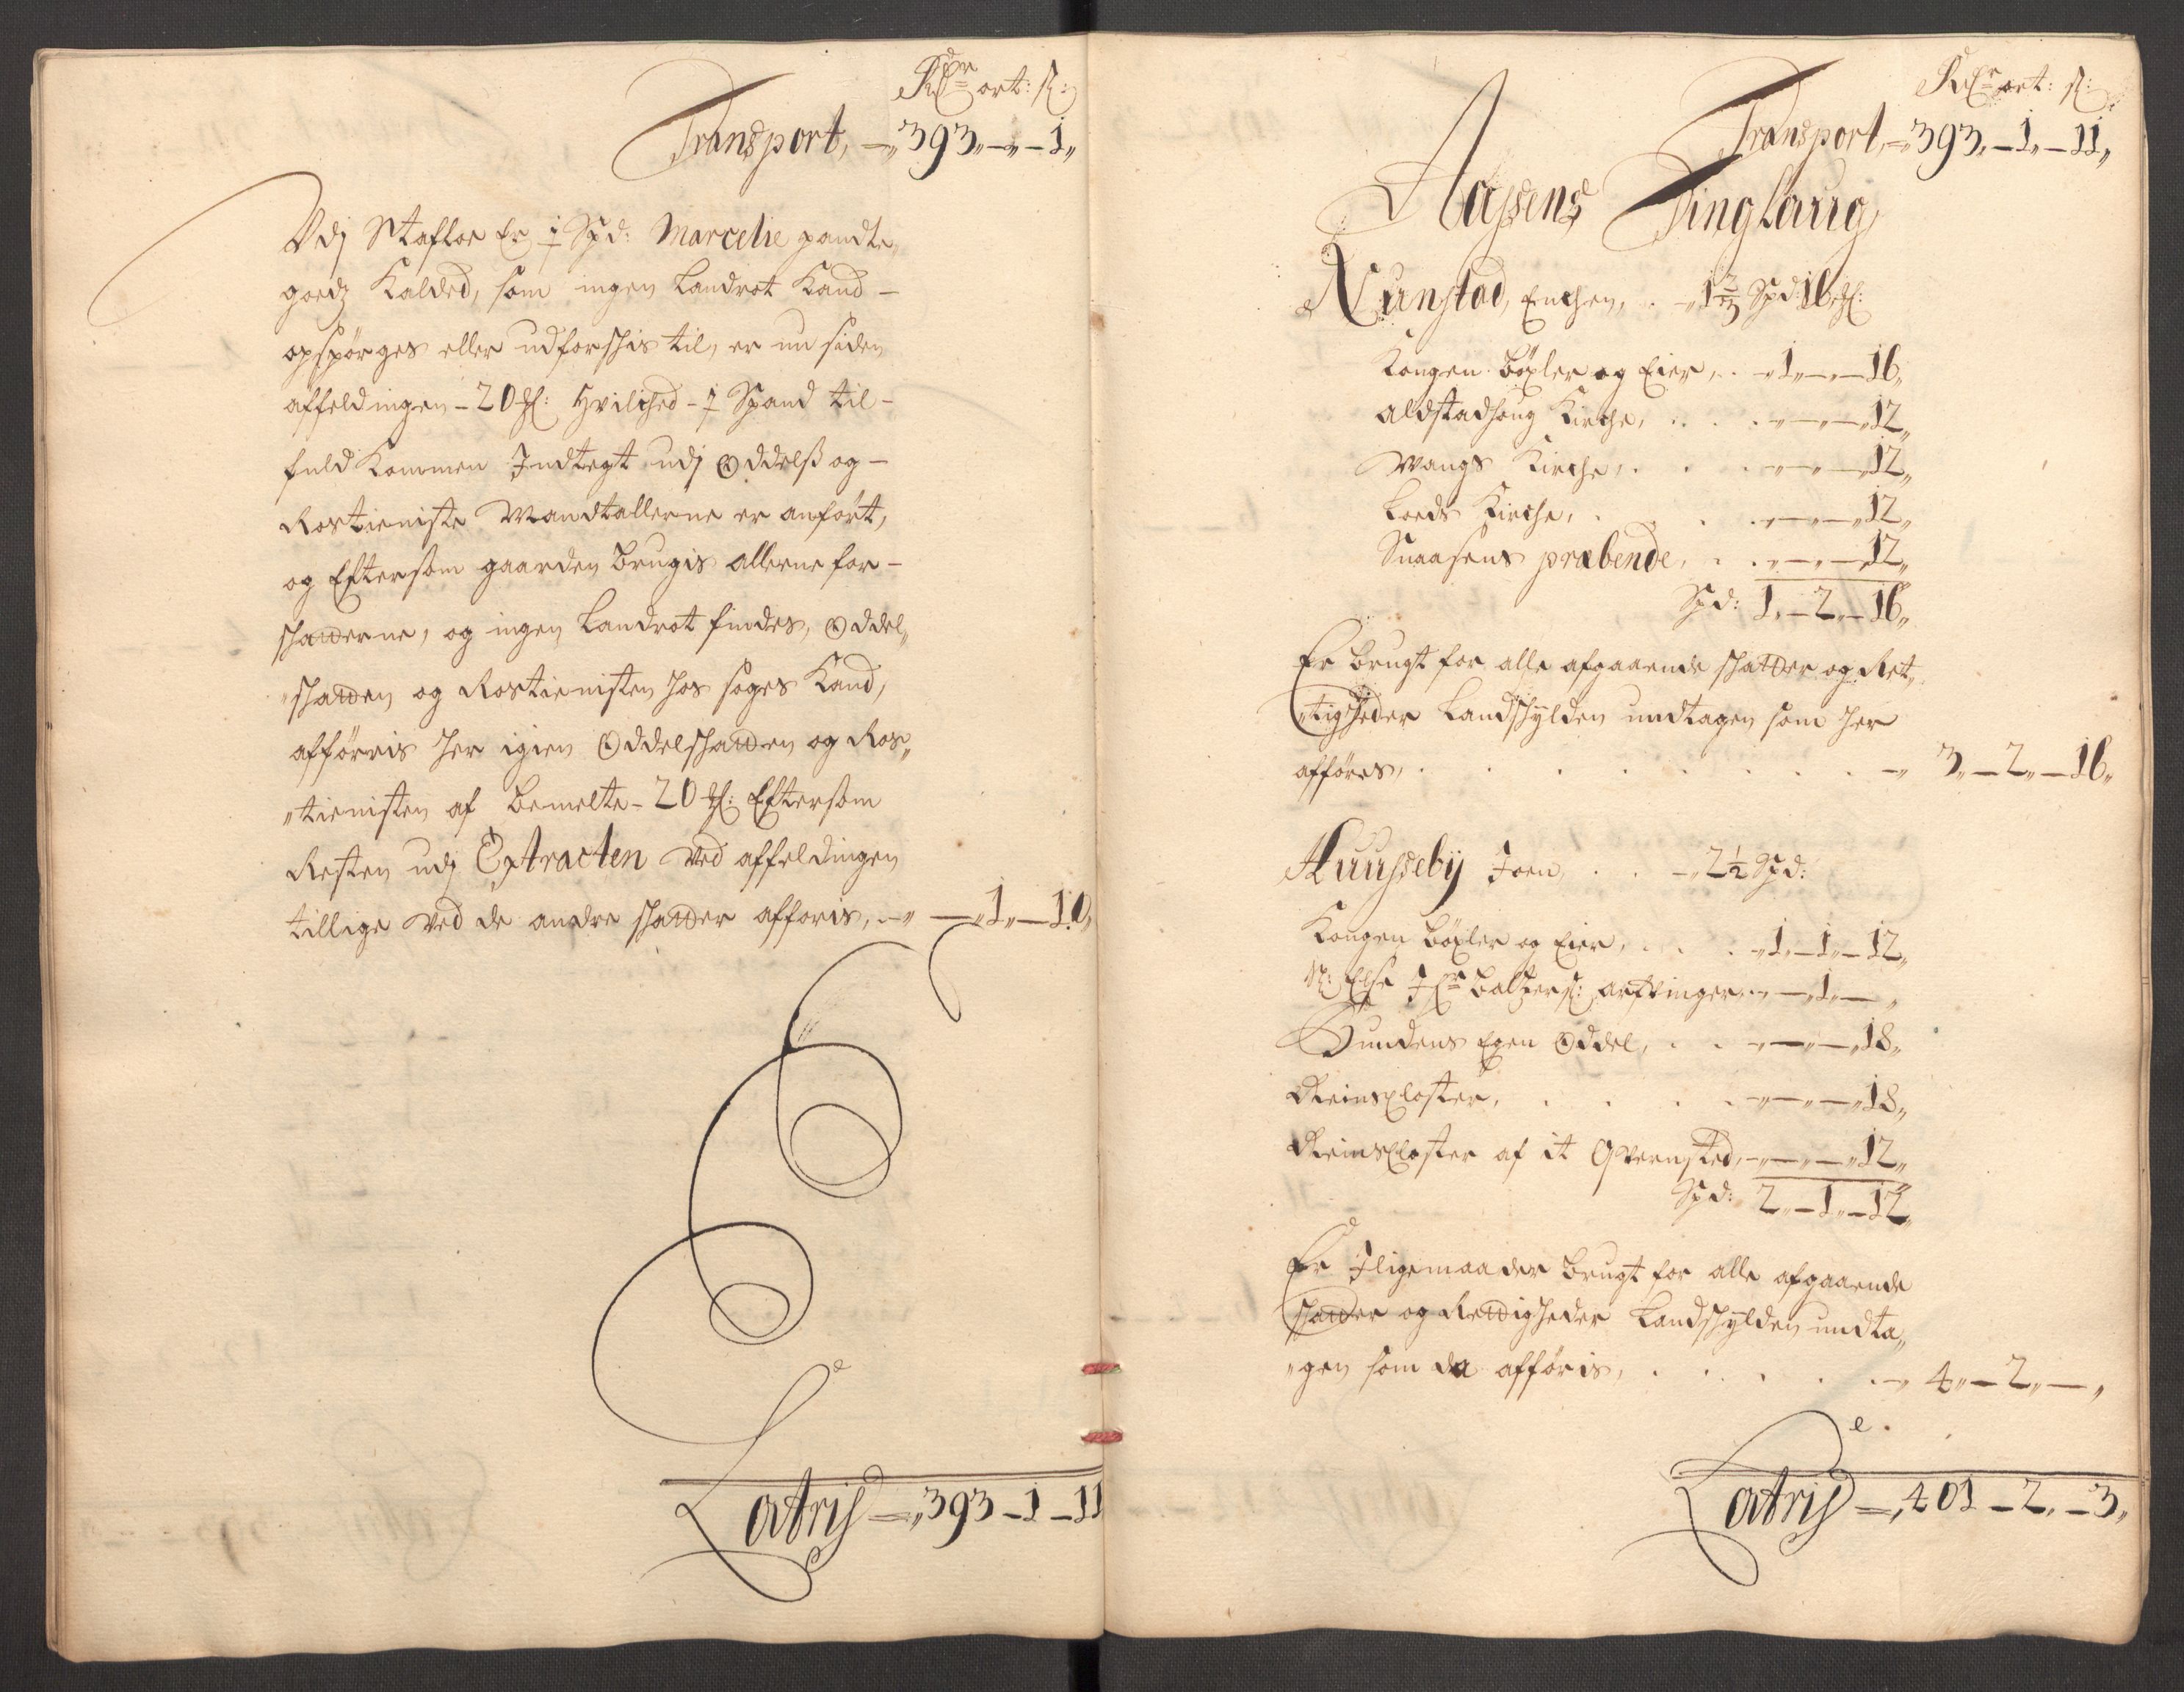 Rdr ort: s:
Transport, — 393 „ — „ — 1 „
Udj Stafloe Er 1 Spd: Marcelie pandte
goedz Kalded, som ingen Landrot Kand –
opspörges eller udforschis til, er nu siden
affeldingen – 20 : Hvilched – 1 Spand til –
fuld Kommen Indtegt udj Oddelss og –
Rostieniste Mandtallerne er anfört,
og Eftersom gaarden brugis allerne for –
schatterne, og ingen Landrot findes, Oddel„
„schatten og Rostienisten hos söges Kand,
afförris her igien Oddelschatten og Ros„
„tienisten af bemelte – 20 : Eftersom
Resten udj Extracten Ved affeldingen
tillige Ved de andre schatter afföris, — „ — „ 1 „ — 10 „
Lateris — „ 393 – 1 – 11
Rdr ort: s:
Transport, — 393 „ — 1 „ — 11 „
Aassens Tinglaug
Runstad, Enchen, . — „ 1 2/3 Spd: 16 :
Kongen böxler og Eier, . — „ 1 „ — „ — 16 „
Aldstadhoug Kirche, . . . — „ — „ — „ 12 „
Wangs Kirche, . . . — „ — „ — „ 12 „
Loeds Kirche, . . . — „ — „ — „ 12 „
Snaasens præbende, . . — „ — „ — „ 12 „
Spd: 1 „ — 2 „ — 16 „
Er brugt for alle afgaaende schatter og Ret„
„tigheder Landschylden undtagen som her
afföres, . . . . . . . . — „ 3 „ — 2 „ — 16 „
Huusseby Joen, . . — „ 2 1/2 Spd:
Kongen böxler og Eier, . . . — „ 1 „ — 1 „ — 12 „
Sl: Else Hr Baltzers: arfvinger, — „ — „ 1 „ — „
Bundens Egen Oddel, . . — „ — „ — „ 18 „
Reinscloster, . . . . — „ — „ — „ 18 „
Reinscloster af it Qvernsted, — „ — „ — „ 12 „
Spd: 2 „ — 1 „ — 12 „
Er Iligemaader brugt for alle afgaaende
schatter og Rettigheder Landschylden undta„
„gen som da afföris, . . . . . — „ 4 „ — 2 „ — „
Lateris — „ 401 – 2 „ – 3 „